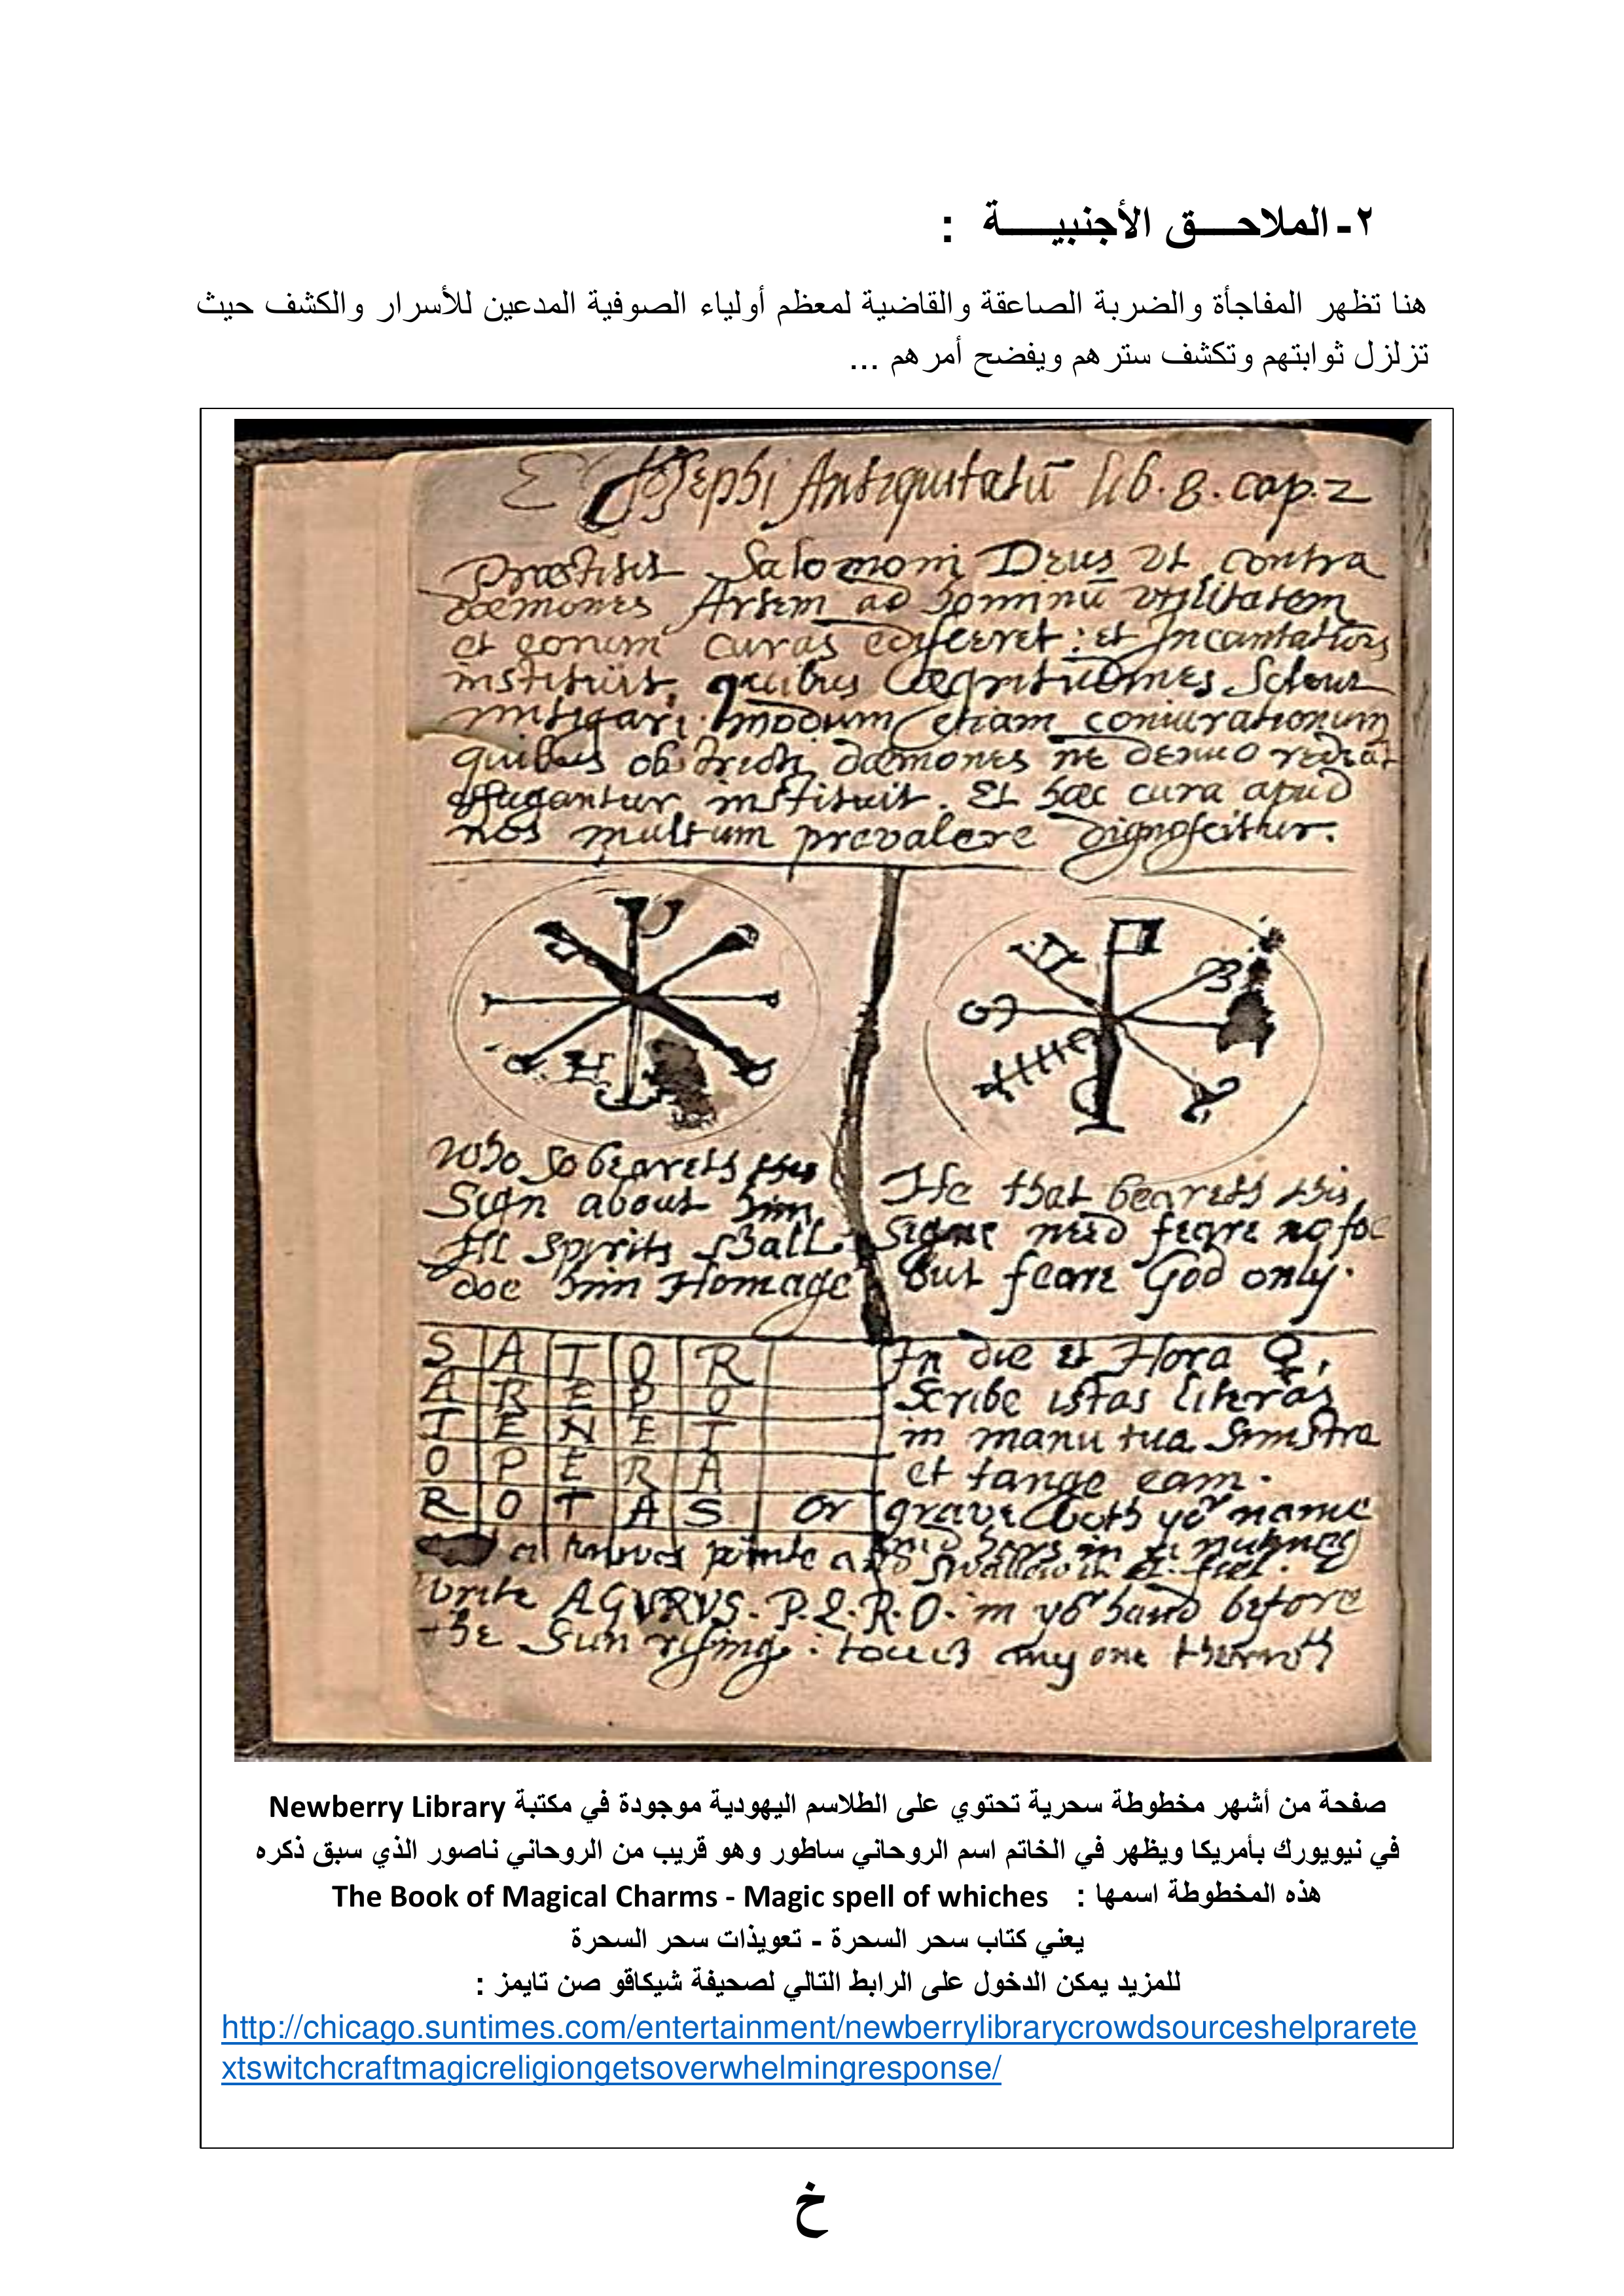 ٢- الملاحـــق الأجنبيـــــة :
هنا تظهر المفاجأة والضربة الصاعقة والقاضية لمعظم أولياء الصوفية المدعين للأسرار والكشف حيث
تزلزل ثوابتهم وتكشف سترهم ويفضح أمرهم ...
Josephi Antiquitatū lib. 8. cap. 2
Præstitit Salomoni Deus vt contra
dæmones Artem ad hominū vtilitatem
et eorum curas edisceret : et Incantationes
instituit, quibus Ægritudines
mitigari. modum etiam coniurationum
quibus obstricti dæmones ne denuo
effugantur instituit. Et hæc cura apud
nos multum prevalere dignoscitur.
Who so beareth this
Sign about him
All spyrits shall
doe him Homage
He that beareth this
Signe need feare no foe
But feare God only.
S A T O R
A R E P O
T E N E T
O P E R A
R O T A S or
In die et Hora ♀,
Scribe istas literas
in manu tua Sinistra
et tange eam.
grave both yor name
write AGVRVS. P.L.R.O. in yor hand before
the Sun rysing : touch any one therwth
صفحة من أشهر مخطوطة سحرية تحتوي على الطلاسم اليهودية موجودة في مكتبة Newberry Library
في نيويورك بأمريكا ويظهر في الخاتم اسم الروحاني ساطور وهو قريب من الروحاني ناصور الذي سبق ذكره
هذه المخطوطة اسمها : The Book of Magical Charms - Magic spell of whiches
يعني كتاب سحر السحرة - تعويذات سحر السحرة
للمزيد يمكن الدخول على الرابط التالي لصحيفة شيكاقو صن تايمز :
http://chicago.suntimes.com/entertainment/newberrylibrarycrowdsourceshelprarete
xtswitchcraftmagicreligiongetsoverwhelmingresponse/
خ